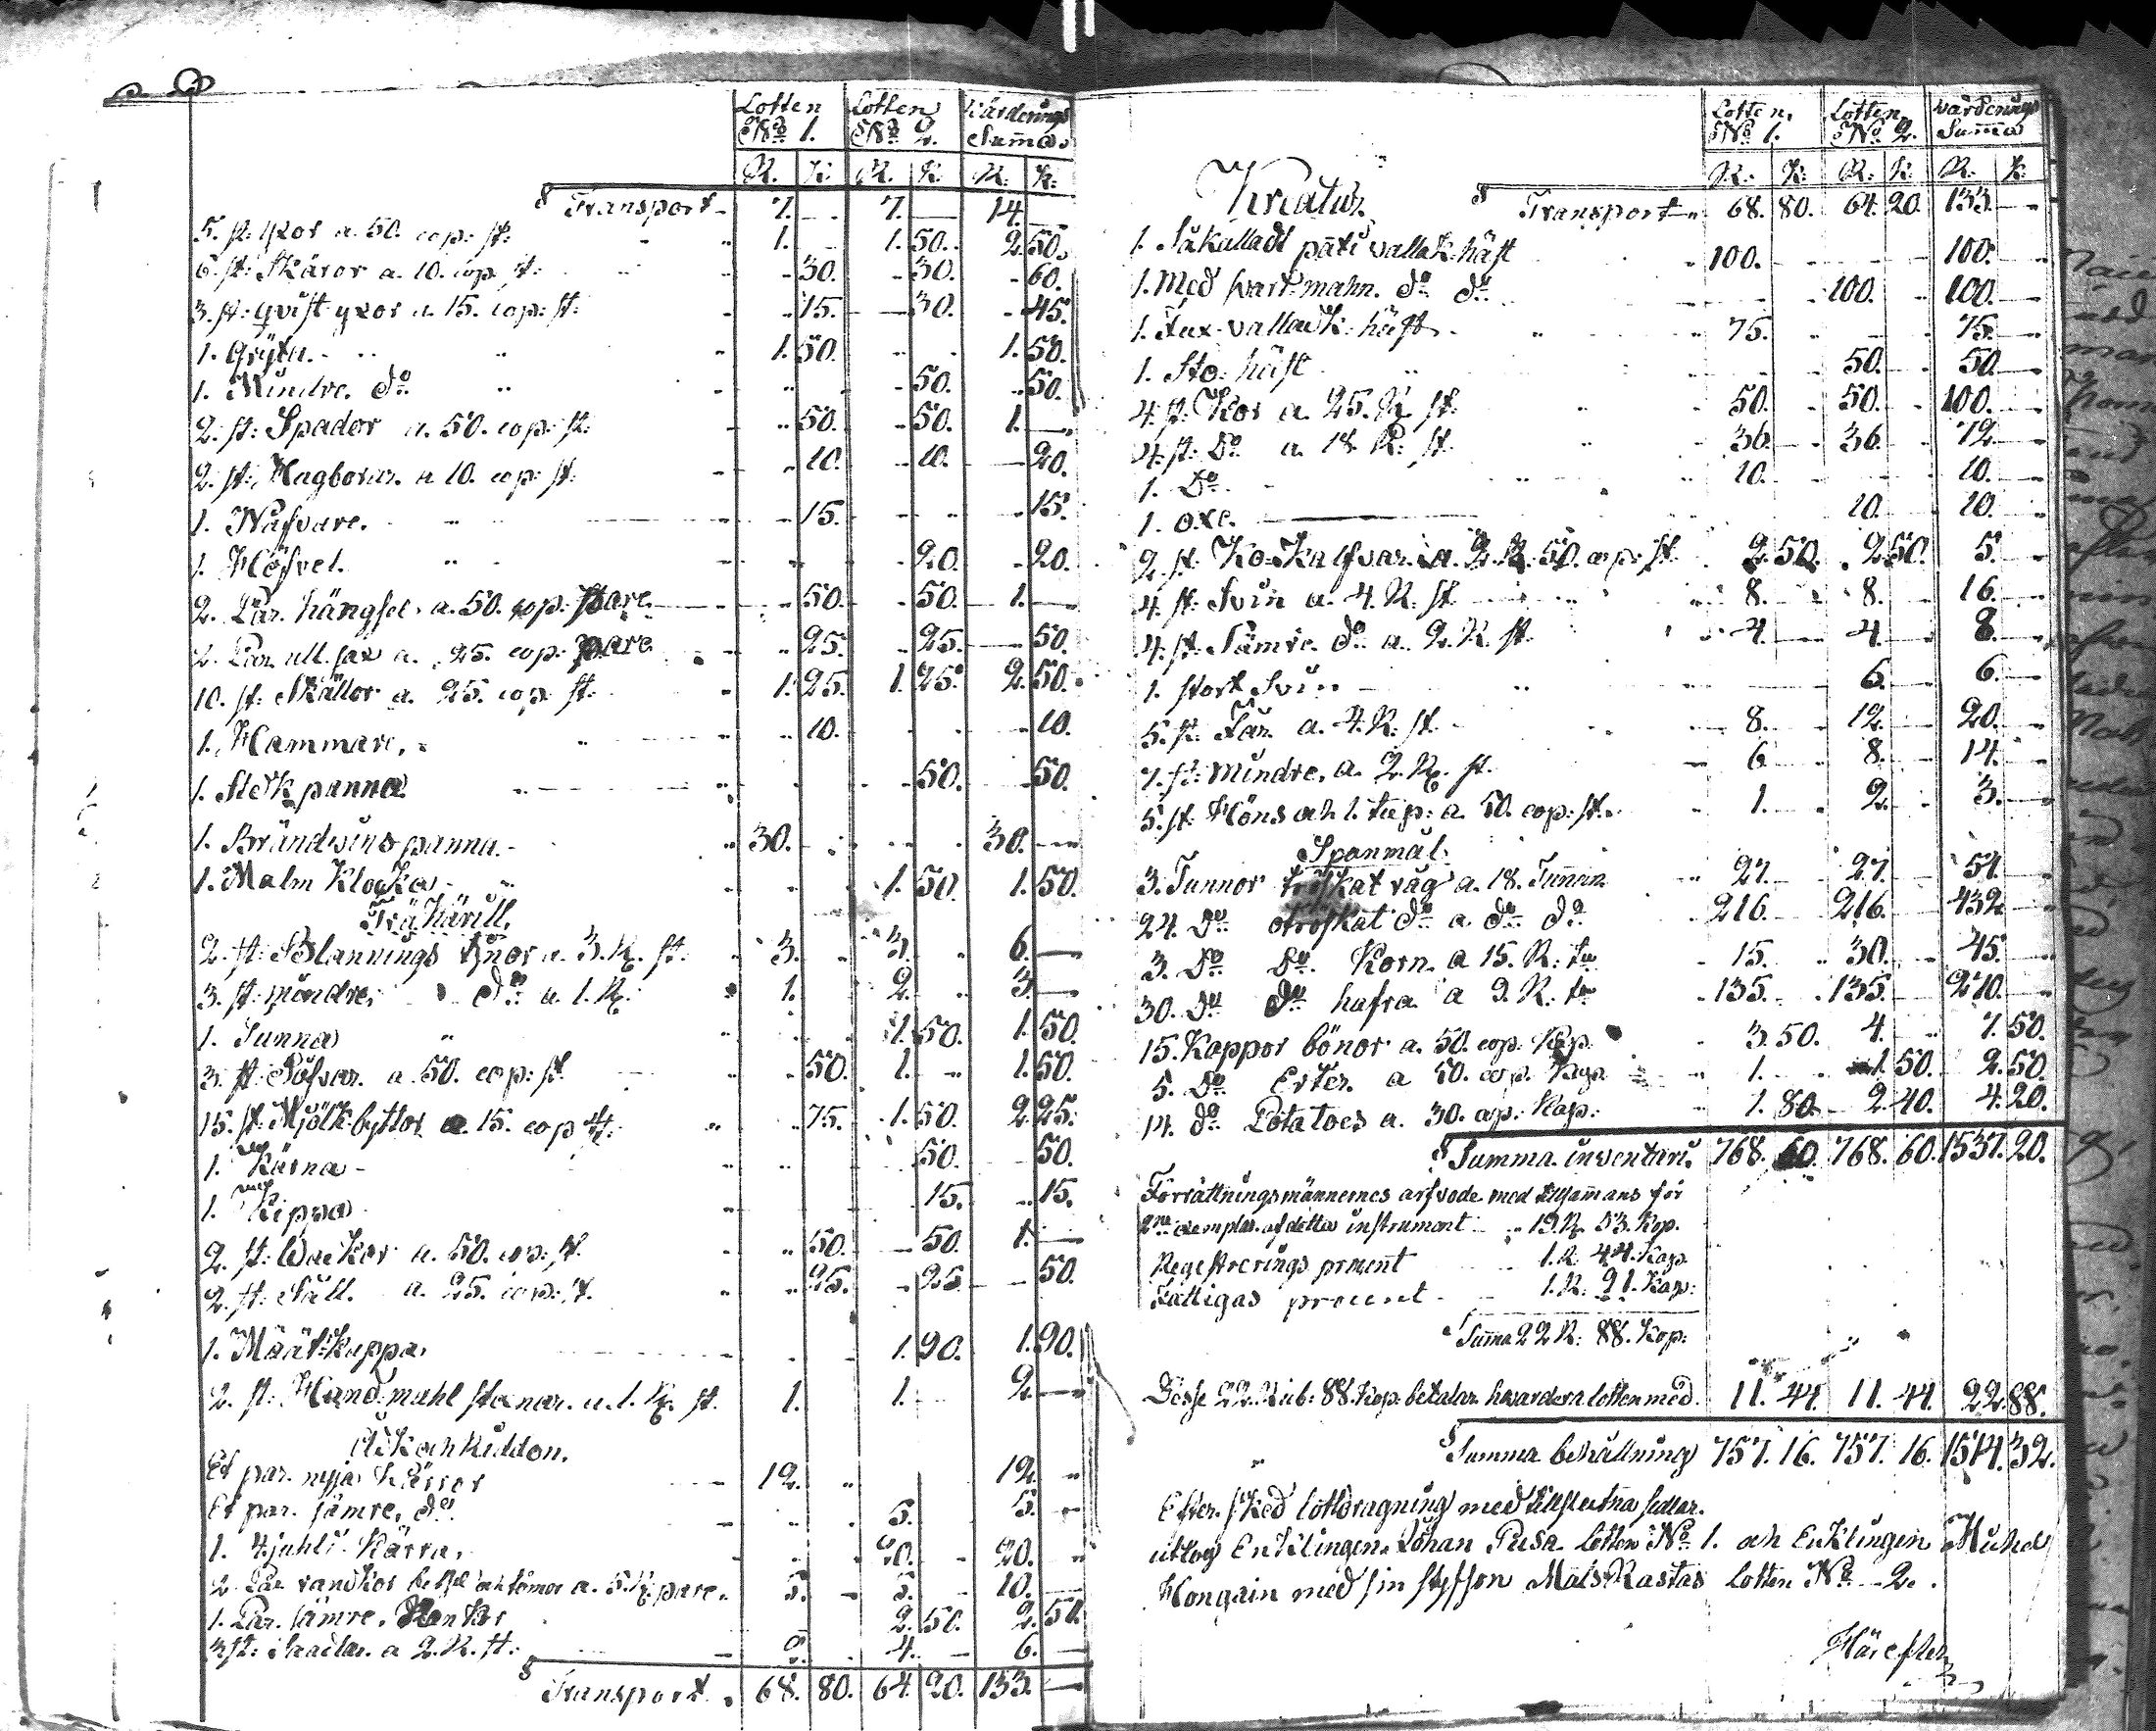 Lotten Lotten Värderings
No 1. No 2. Summa
R. K. R. K. R. K.
Transport 7. — 7. — 14. —
5. st: yxor a. 50. cop: st: 1. 1. 50. 2. 50.
6. st: Skäror a. 10. cop. st: 30. 30. 60.
3. st: qvist yxor a. 15. cop: st: 15. 30. 45.
1. Gryta. 1. 50. 1. 50.
1. Mindre. do 50. 50.
2. st: Spador a. 50. cop: st: 50. 50. 1. —
2. st: Hagborar. a 10. cop: st: 10. 10. 20.
1. Nafvare. 15. 15.
1. Höfvel. 20. 20.
2. Par. hängsel. a. 50. cop: pare 50. 50. 1. —
2. Par ull. sax a. 25. cop: pare 25. 25. 50.
10. st: Skällor a. 25. cop st: 1. 25. 1. 25. 2. 50.
1. Hammare. 10. 10.
1. Stekpanna 50. 50.
1. Brändvins panna. 30. 30. —
1. Malm Klocka 1. 50. 1. 50.
Träkärill.
2. st: Blannings tynor a. 3. R. st. 3. 3. 6. —
3. st: mindre, do a 1. R. 1. 2. 3. —
1. Tunna 1. 50. 1. 50.
3. st: Såfvar. a. 50. cop: st 50. 1. 1. 50.
15. st: Mjölk. byttor a. 15. cop st: 75. 1. 50. 2. 25.
1. Kärna 50. 50.
1. Kippa 15. 15.
2. st: Backor a. 50. cop: st 50. 50. 1. —
2. st: Såll. a. 25. cop: st. 25. 25 50.
1. Määt: Kappa. 1. 90. 1. 90.
2. st: Handmahl stenar. a. 1. R. st. 1. 1. 2. —
Åk och Riddon.
Et par. nyja Kärror 12. 12.
Et par. sämre, do 5. 5.
1. Kärra. 20. 20.
2. Par och tömor a. 5. R. pare. 5. 5. 10.
1. Par. sämre. 2. 50. 2. 50.
3 st: Sadlar. a 2. R. st: 2. 4. 6. —
Transport. 68. 80. 64. 20. 133. —
Lotten. Lotten Värderings
No 1. No 2. Summa
R. K. R. K. R. K.
Kreatur. Transport 68. 80. 64. 20. 133. —
1. Såkalladt valla K. häst 100. 100. —
1. Med svart mahn. do do 100. 100. —
1. Fux. vallack: häst 75. 75. —
1. Sto: häst 50. 50 —
4. st: Kor a. 25. R. st. 50. 50. 100. —
4. st: Do a. 18. R: st. 36. 36. 72 —
1. Do 10. 10. —
1. oxe. 10. 10. —
2. st. Ko. Kalfvar. a. 2. R. 50. cop: st 2. 50. 2. 50. 5. —
4. st: Svin a. 4. R. st 8. 8. 16. —
4. st: Sämre. do a. 2. R. st. 4. 4. 8. —
1. stort Svin 6. 6. —
5. st: Får a. 4. R. st. 8. 12. 20. —
7. st: mindre. a. 2. R. st. 6 8. 14. —
5. st: Höns och 1. tup: a. 50. cop: st. 1. 2. 3. —
Spanmål.
3. Tunnor tröskat råg a. 18. Tunnan. 27. 27. 54. —
24. Do otröskat do a do do 216. 216. 432 —
3. Do Do Korn. a 15. R: tn 15. 30. 45. —
30. Do do hafra a 9. R. tn 135. 135. 270. —
15. Kappor bönor a. 50. cop. Kap. 3. 50. 4. 7. 50.
5. Do Erter. a 50. cop. Kap. 1. 1. 50. 2. 50.
14. do Potatoes a. 30. cop: Kap. 1. 80. 2. 40. 4. 20.
Summa. inventarii. 768. 60. 768. 60. 1537. 20.
Förrättningsmännernes arfvode med tillsammans för
2ne exemplar. af detta instrument 19. R. 53. Kop.
Regestrerings procent 1. R 44. Kop.
Fattigas procent 1. R. 91. Kop:
Summa 22 R: 88. Kop:
Desse 22. Rub: 88. Kop. betalar hwardera lotten med. 11. 44. 11. 44. 22. 88.
Summa behållning 757. 16. 757. 16. 1514. 32.
Efter. sked lottdragning med sedlar.
uttog Enklingen. Johan Pusa lotten No 1. och Enklingen
Hongain med sin styfson Mats Rastas lotten No 2.
Härefter